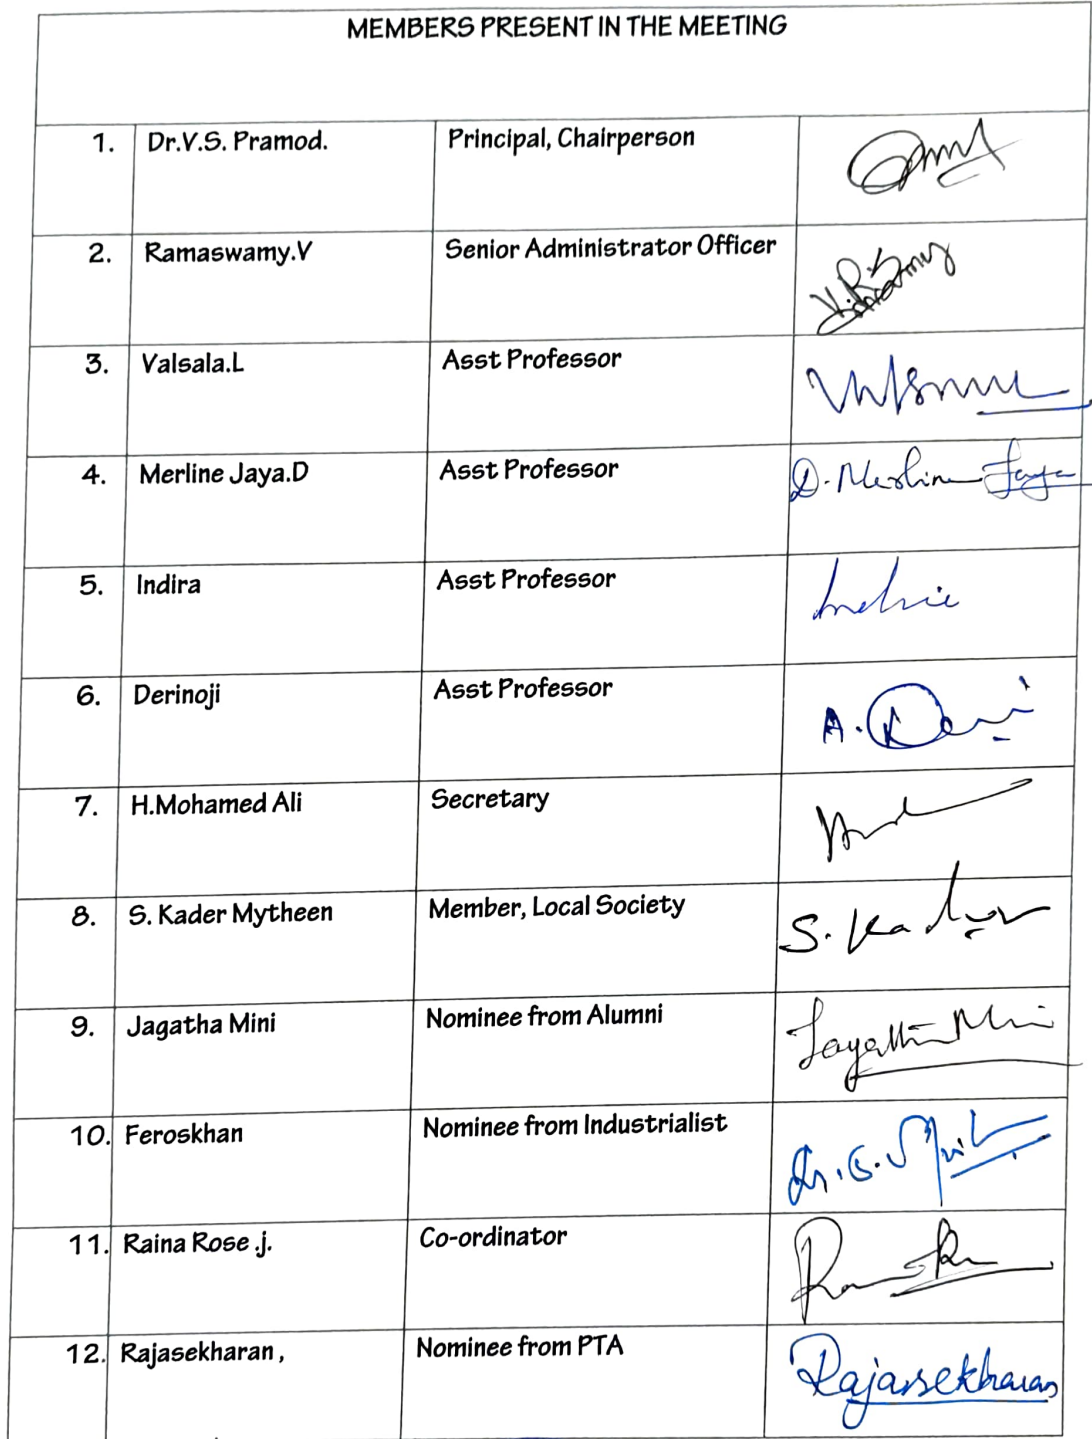 MEMBERS PRESENT IN THE MEETING
1. Dr.V.S. Pramod. Principal, Chairperson
2. Ramaswamy.V Senior Administrator Officer
3. Valsala.L Asst Professor
4. Merline Jaya.D Asst Professor D. Merline Jaya
5. Indira Asst Professor
6. Derinoji Asst Professor
7. H.Mohamed Ali Secretary
8. S. Kader Mytheen Member, Local Society S. Kader
9. Jagatha Mini Nominee from Alumni
10. Feroskhan Nominee from Industrialist
11. Raina Rose .j. Co-ordinator
12. Rajasekharan , Nominee from PTA Rajasekharan